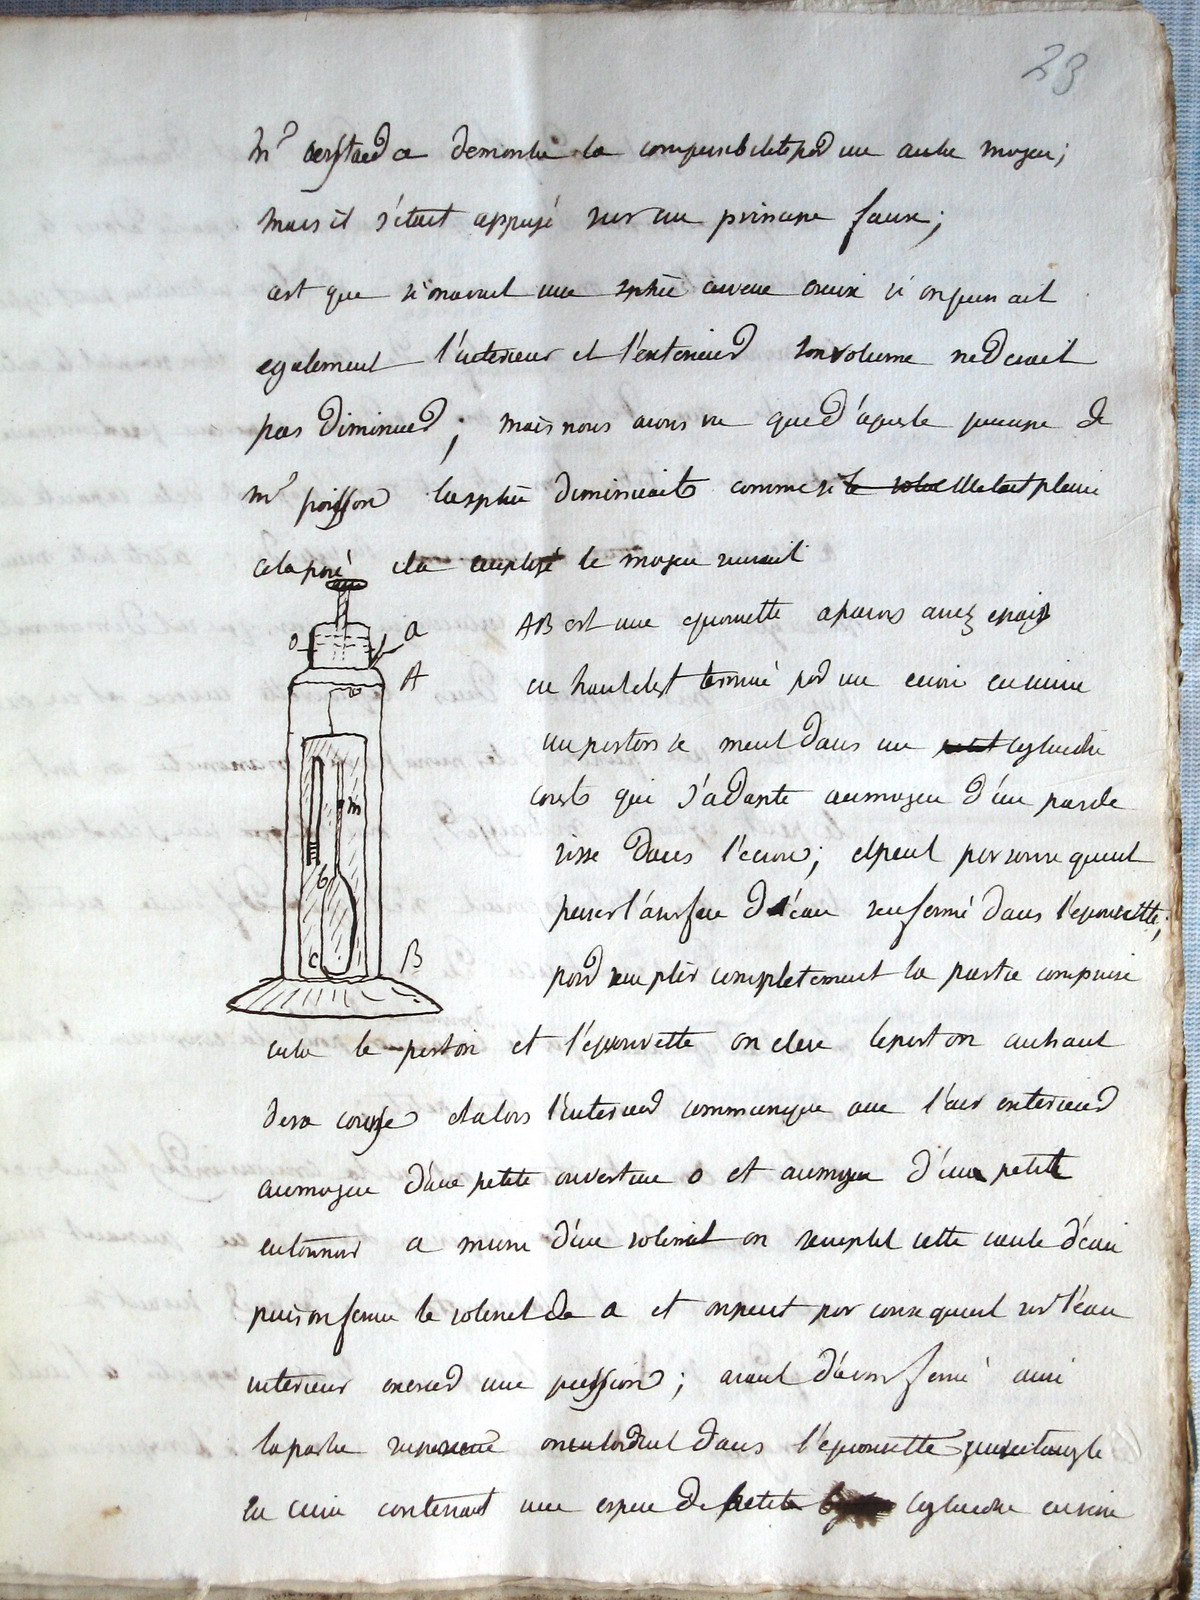 23
Mr oerstaed a demontré la compressibilité par un autre moyen;
mais il s'était appuyé sur un principe faux;
c'est que si on avait une sphère creuse si on pressait
egalement l'interieur et l'exterieur son volume ne devait
pas diminuer; mais nous avons vu que d'après le principe de
mr poisson la sphère diminuait comme si le elle etait pleine
cela posé il a employé le moyen suivant
o a
AB est une eprouvette a parois assez epais
A
en haut elle est terminé par un ecrou en cuivre
v
un piston se meut dans un petit cylindre
m
court qui s'adapte au moyen d'un pas de
visse dans l'ecrou; et peut par consequent
b
presser la surface de l'eau renfermé dans l'eprouvette;
c B
pour remplir completement la partie comprise
entre le piston et l'eprouvette on eleve le piston au haut
de sa course et alors l'interieur communique avec l'air exterieur
au moyen d'une petite ouverture o et au moyen d'un petit
entonnoir a muni d'un robinet on remplit cette [...] d'eau
puis on ferme le robinet de a et on peut par consequent sur l'eau
interieur exercer une pression; avant d'avoir fermé ainsi
la partie superieure on introduit dans l'eprouvette un rectangle
en cuivre contenant une espece de petite cylindre en verre